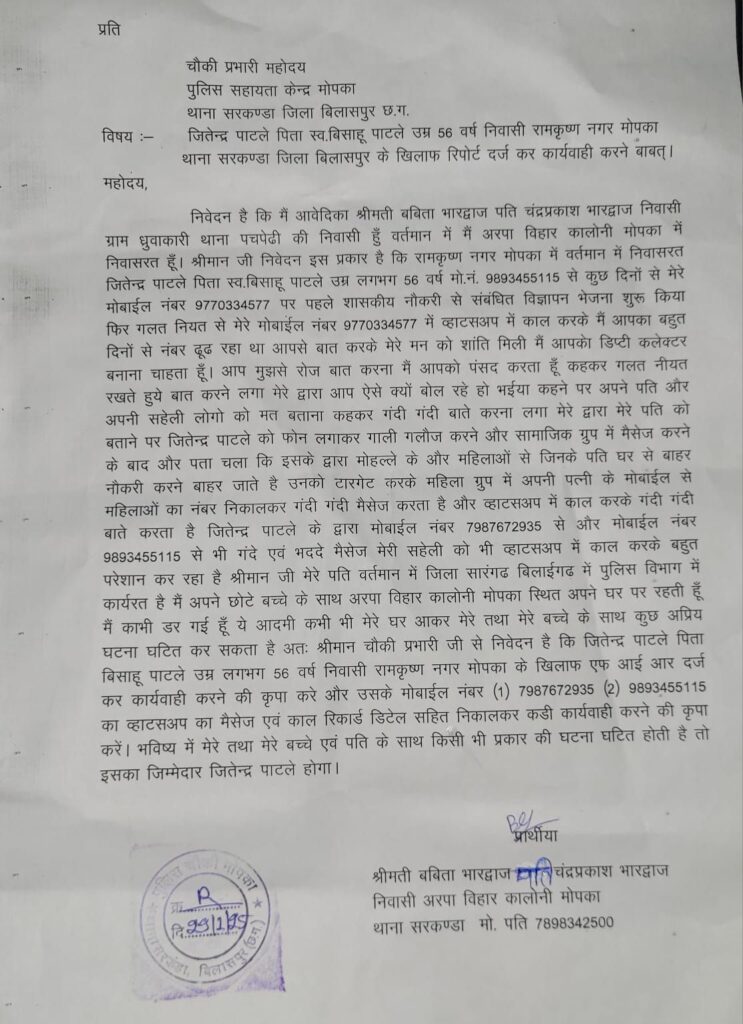 प्रति
चौकी प्रभारी महोदय
पुलिस सहायता केन्द्र मोपका
थाना सरकण्डा जिला बिलासपुर छ.ग.
विषय :– जितेन्द्र पाटले पिता स्व.बिसाहू पाटले उम्र 56 वर्ष निवासी रामकृष्ण नगर मोपका
थाना सरकण्डा जिला बिलासपुर के खिलाफ रिपोर्ट दर्ज कर कार्यवाही करने बाबत्।
महोदय,
निवेदन है कि मैं आवेदिका श्रीमती बबिता भारद्वाज पति चंद्रप्रकाश भारद्वाज निवासी
ग्राम ध्रुवाकारी थाना पचपेढी की निवासी हुँ वर्तमान में मैं अरपा विहार कालोनी मोपका में
निवासरत हूँ। श्रीमान जी निवेदन इस प्रकार है कि रामकृष्ण नगर मोपका में वर्तमान में निवासरत
जितेन्द्र पाटले पिता स्व.बिसाहू पाटले उम्र लगभग 56 वर्ष मो.नं. 9893455115 से कुछ दिनों से मेरे
मोबाईल नंबर 9770334577 पर पहले शासकीय नौकरी से संबंधित विज्ञापन भेजना शुरू किया
फिर गलत नियत से मेरे मोबाईल नंबर 9770334577 में व्हाटसअप में काल करके मैं आपका बहुत
दिनों से नंबर ढूढ रहा था आपसे बात करके मेरे मन को शांति मिली मैं आपकेा डिप्टी कलेक्टर
बनाना चाहता हूँ। आप मुझसे रोज बात करना मैं आपको पंसद करता हूँ कहकर गलत नीयत
रखते हुये बात करने लगा मेरे द्वारा आप ऐसे क्यों बोल रहे हो भईया कहने पर अपने पति और
अपनी सहेली लोगो को मत बताना कहकर गंदी गंदी बाते करना लगा मेरे द्वारा मेरे पति को
बताने पर जितेन्द्र पाटले को फोन लगाकर गाली गलौज करने और सामाजिक ग्रुप में मैसेज करने
के बाद और पता चला कि इसके द्वारा मोहल्ले के और महिलाओं से जिनके पति घर से बाहर
नौकरी करने बाहर जाते है उनको टारगेट करके महिला ग्रुप में अपनी पत्नी के मोबाईल से
महिलाओं का नंबर निकालकर गंदी गंदी मैसेज करता है और व्हाटसअप में काल करके गंदी गंदी
बाते करता है जितेन्द्र पाटले के द्वारा मोबाईल नंबर 7987672935 से और मोबाईल नंबर
9893455115 से भी गंदे एवं भददे मैसेज मेरी सहेली को भी व्हाटसअप में काल करके बहुत
परेशान कर रहा है श्रीमान जी मेरे पति वर्तमान में जिला सारंगढ बिलाईगढ में पुलिस विभाग में
कार्यरत है मैं अपने छोटे बच्चे के साथ अरपा विहार कालोनी मोपका स्थित अपने घर पर रहती हूँ
मैं काभी डर गई हूँ ये आदमी कभी भी मेरे घर आकर मेरे तथा मेरे बच्चे के साथ कुछ अप्रिय
घटना घटित कर सकता है अतः श्रीमान चौकी प्रभारी जी से निवेदन है कि जितेन्द्र पाटले पिता
बिसाहू पाटले उम्र लगभग 56 वर्ष निवासी रामकृष्ण नगर मोपका के खिलाफ एफ आई आर दर्ज
कर कार्यवाही करने की कृपा करे और उसके मोबाईल नंबर (1) 7987672935 (2) 9893455115
का व्हाटसअप का मैसेज एवं काल रिकार्ड डिटेल सहित निकालकर कडी कार्यवाही करने की कृपा
करें। भविष्य में मेरे तथा मेरे बच्चे एवं पति के साथ किसी भी प्रकार की घटना घटित होती है तो
इसका जिम्मेदार जितेन्द्र पाटले होगा।
प्रार्थीया
श्रीमती बबिता भारद्वाज पति चंद्रप्रकाश भारद्वाज
निवासी अरपा विहार कालोनी मोपका
थाना सरकण्डा मो. पति 7898342500
पुलिस चौकी मोपका
प्रा. R
दि. 29/1/25
थाना सरकंडा, बिलासपुर (छ.ग.)